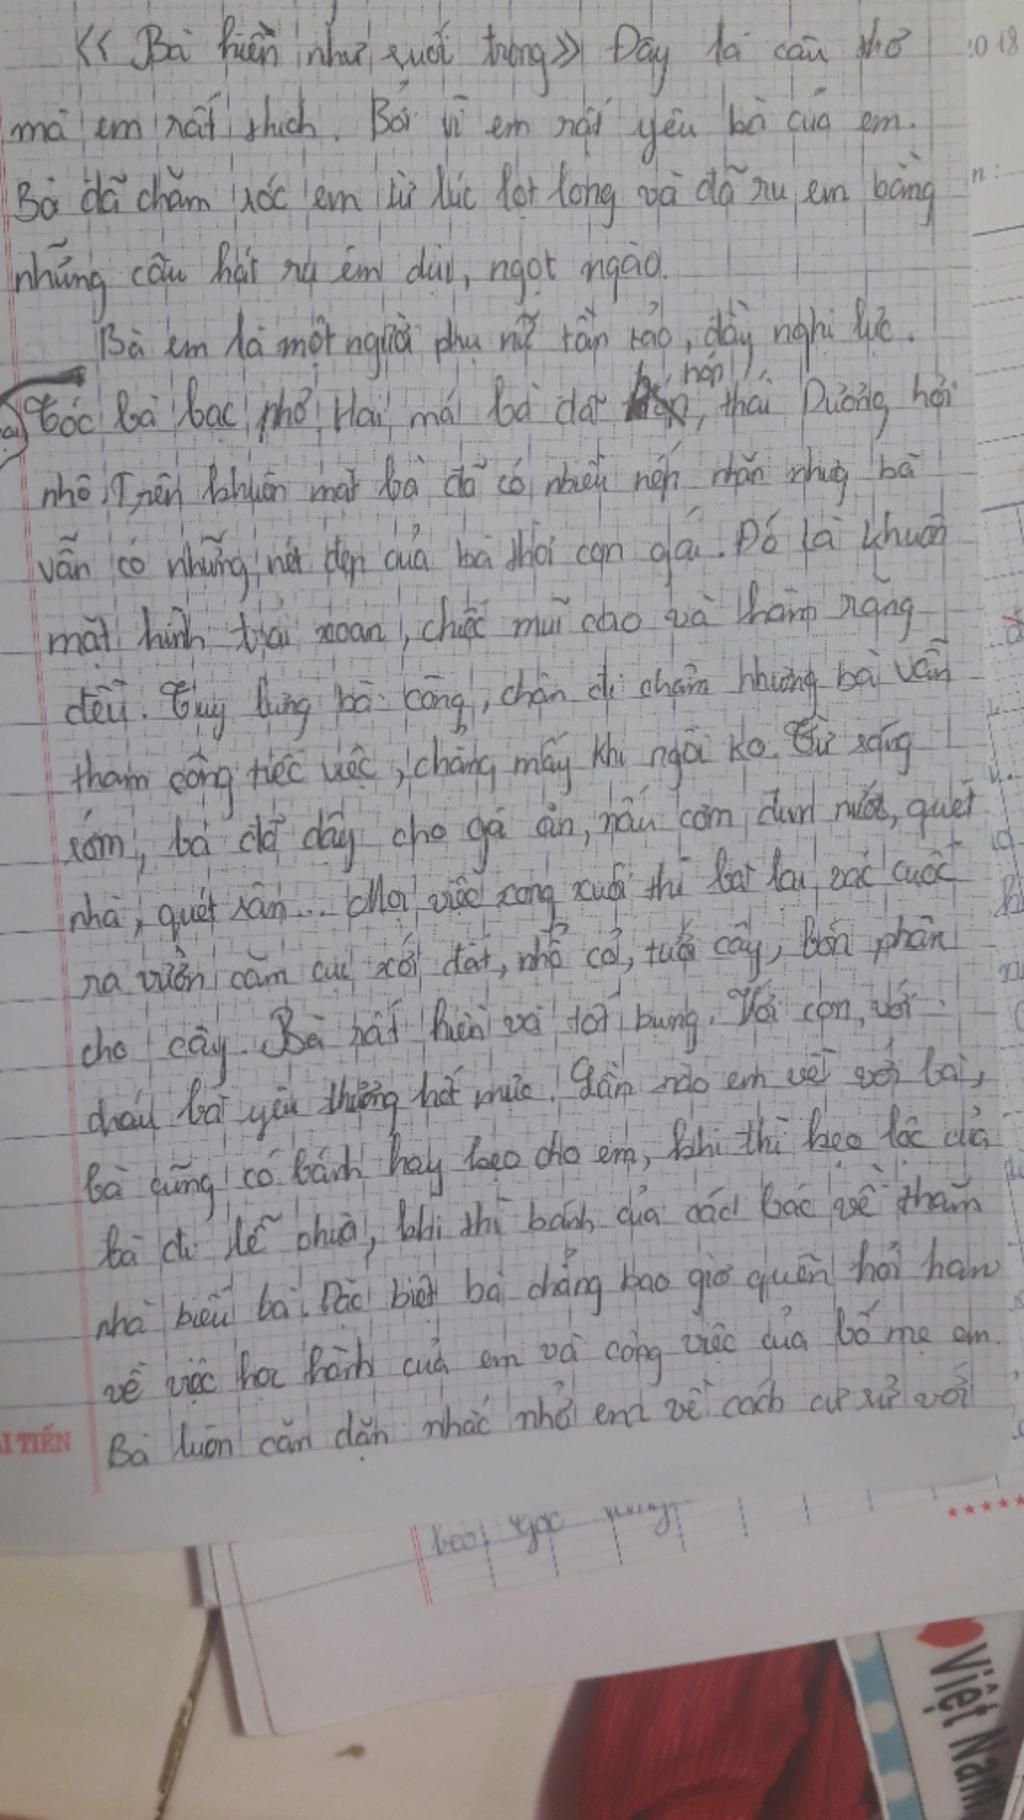 << Bà hiền như suối trong >> Đây là câu thơ
mà em rất thích. Bởi vì em rất yêu bà của em.
Bà đã chăm sóc em từ lúc lọt lòng và đã ru em bằng
những câu hát ru êm dịu, ngọt ngào.
Bà em là một người phụ nữ tần tảo, đầy nghị lực.
Tóc bà bạc phơ, Hai má bà đã hóp, thái Dương hơi
nhô. Trên khuôn mặt bà đã có nhiều nếp nhăn nhưg bà
vẫn có những nét đẹp của bà thời con gái. Đó là khuôn
mặt hình trái xoan, chiếc mũi cao và hàm răng
đều. Tuy lưng bà còng, chân đi chậm nhưng bà vẫn
tham công tiếc việc, chẳng mấy khi ngồi ko. Từ sáng
sớm, bà đã dậy cho gà ăn, nấu cơm đun nước, quét
nhà, quét sân... Mọi việc xong xuôi thì bà lại vác cuốc
ra vườn cặm cụi xới đất, nhổ cỏ, tưới cây, bón phân
cho cây. Bà rất hiền và tốt bụng. Với con, với
cháu bà yêu thương hết mực. Lần nào em về với bà,
bà cũng có bánh hay kẹo cho em, khi thì kẹo lộc của
bà đi lễ chùa, khi thì bánh của các bác về thăm
nhà biếu bà. Đặc biệt bà chẳng bao giờ quên hỏi han
về việc học hành của em và công việc của bố mẹ em.
Bà luôn căn dặn nhắc nhở em về cách cư xử với
I TIẾN
2018
Việt Nam